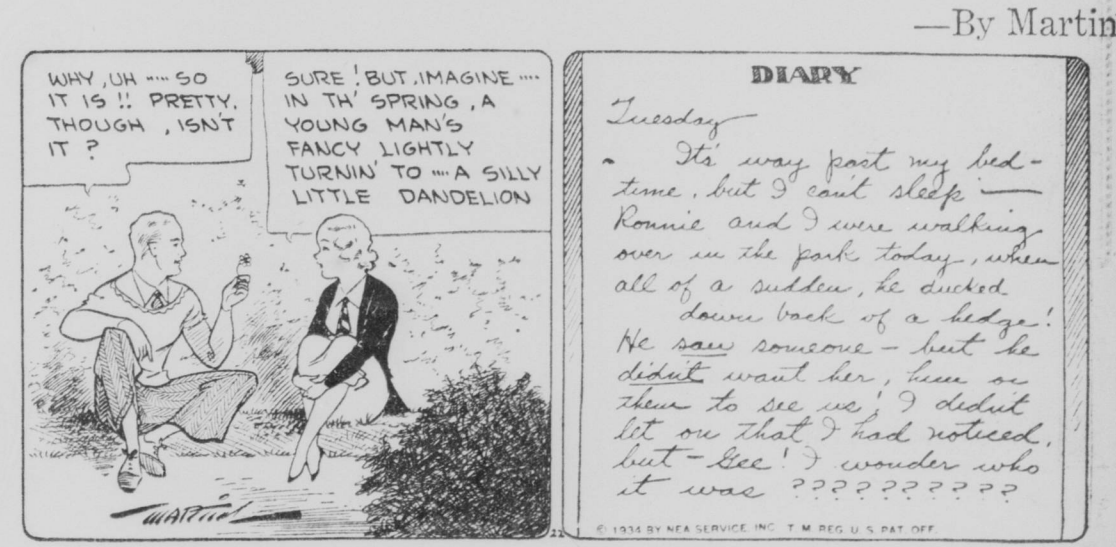 —By Martin
WHY, UH ..... SO
IT IS !! PRETTY,
THOUGH , ISN'T
IT ?
SURE ! BUT, IMAGINE ....
IN TH' SPRING , A
YOUNG MAN'S
FANCY LIGHTLY
TURNIN' TO .... A SILLY
LITTLE DANDELION
MARTIN
DIARY
Tuesday
It's way past my bed-
time, but I can't sleep —
Ronnie and I were walking
over in the park today, when
all of a sudden, he ducked
down back of a hedge!
He saw someone – but he
didn't want her, him or
them to see us! I didn't
let on that I had noticed,
but – Gee! I wonder who
it was ??????????
© 1934 BY NEA SERVICE, INC. T. M. REG. U. S. PAT. OFF.